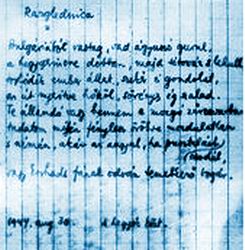 Razglednica
Bulgáriából vastag, vad ágyuszó gurul,
a hegygerincre dobban, majd tétováz s lehull
torlódik ember, állat, szekér és gondolat,
az út nyerítve hőköl, sörényes ég szalad.
Te állandó vagy bennem e mozgó zűrzavarban
tudatom mélyén fénylesz örökre mozdulatlan
s némán, akár az angyal, ha pusztulást
csodál,
vagy korhadt fának odván temetkező bogár.
1944. aug. 30. A hegyek közt.